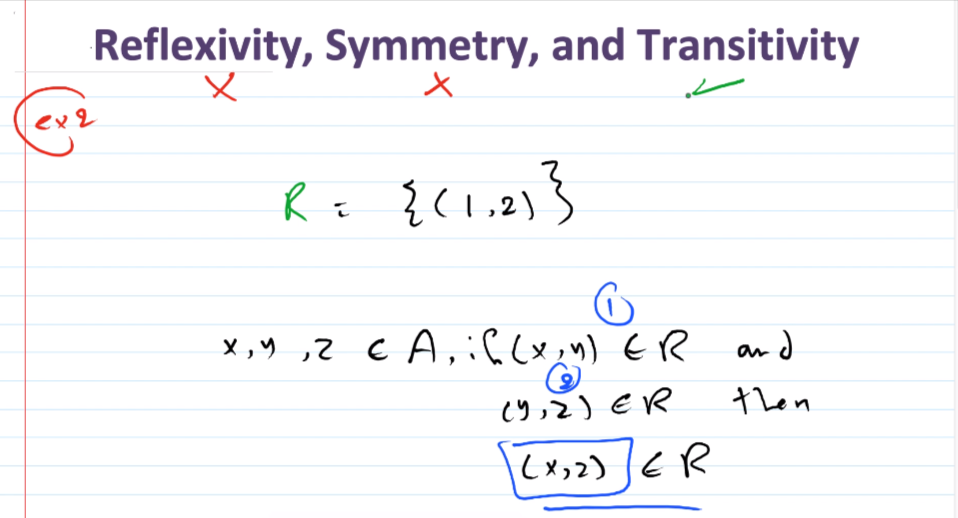 Reflexivity, Symmetry, and Transitivity
ex 2
R = {(1,2)}
①
x,y,z ∈ A, if (x,y) ∈ R and
②
(y,z) ∈ R then
(x,z) ∈ R